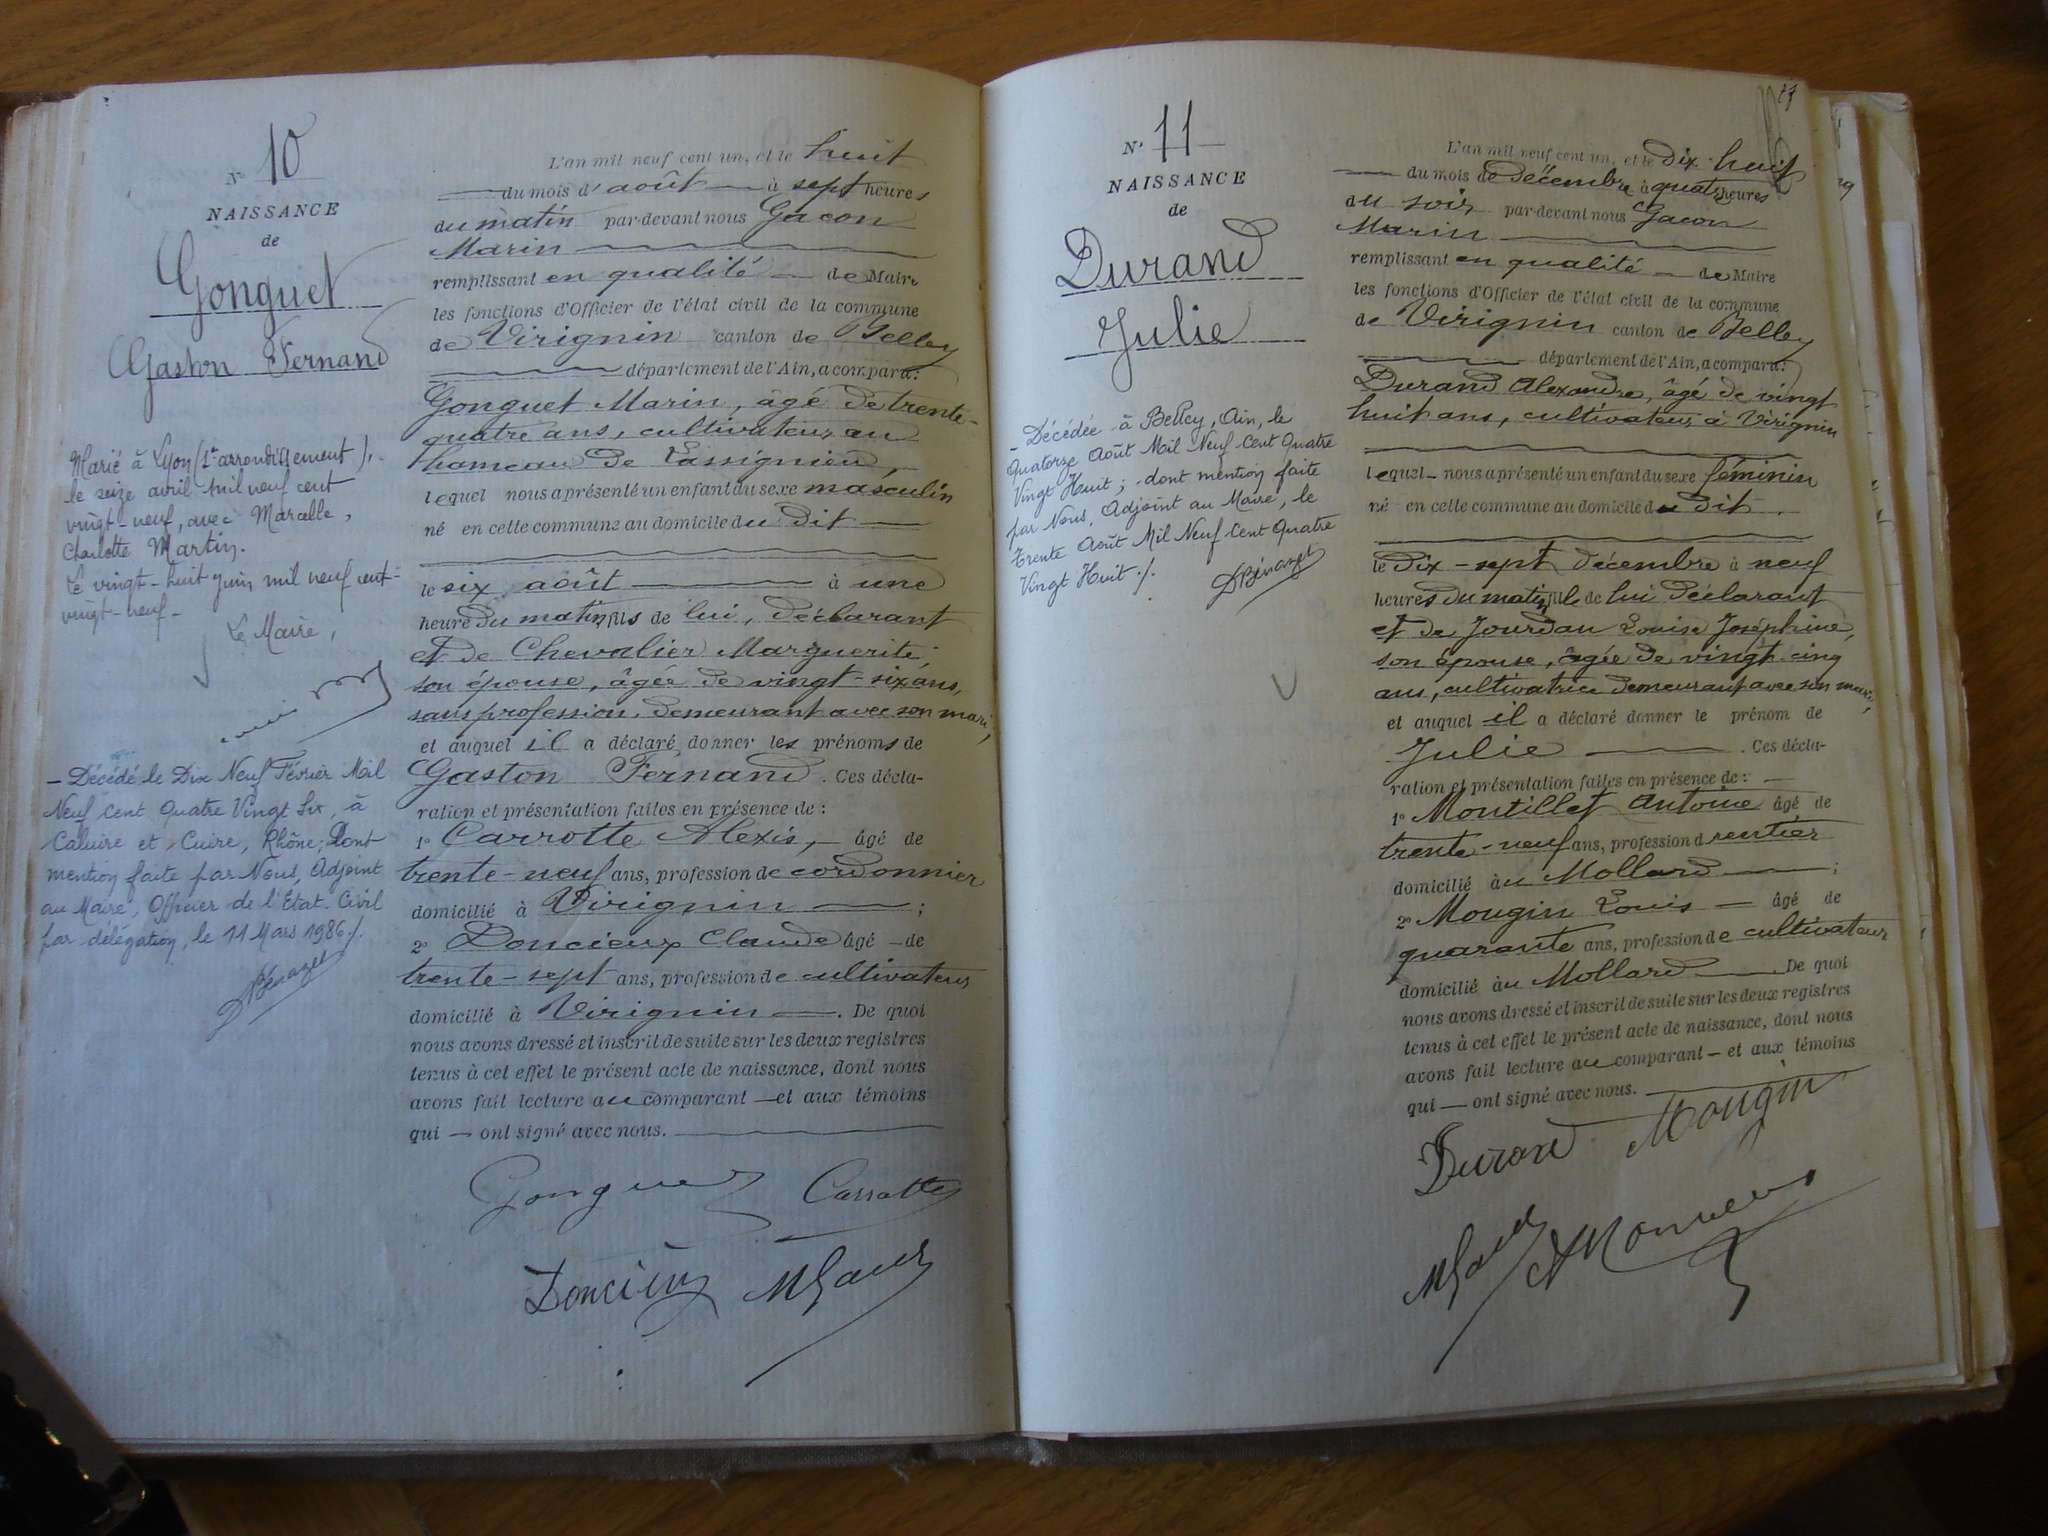 N° 10
NAISSANCE
de
Gonguet
Gaston Fernand
Marié à Lyon (1er arrondissement),
le seize avril mil neuf cent
vingt-neuf, avec Marcelle,
Charlotte Martin.
Le vingt-huit juin mil neuf cent-
vingt-neuf-
Le Maire,
- Décédé le Dix Neuf Février Mil
Neuf Cent Quatre Vingt Six, à
Caluire et Cuire, Rhône; Dont
mention faite par Nous, Adjoint
au Maire, Officier de l'Etat-Civil
par délégation, le 11 Mars 1986./.
L'an mil neuf cent un, et le huit
du mois d'août à sept heures
du matin par-devant nous Gacon
Marin
remplissant en qualité de Maire
les fonctions d'Officier de l'état civil de la commune
de Virignin canton de Belley
département de l'Ain, a comparu:
Gonguet Marin, âgé de trente-
quatre ans, cultivateur au
hameau de Lassignieu,
lequel nous a présenté un enfant du sexe masculin
né en cette commune au domicile du dit
le six août à une
heure du matin, fils de lui, déclarant
et de Chevalier Marguerite,
son épouse, âgée de vingt-six ans,
sans profession, demeurant avec son mari,
et auquel il a déclaré donner les prénoms de
Gaston Fernand. Ces décla-
ration et présentation faites en présence de:
1° Carrotte Alexis, âgé de
trente-neuf ans, profession de cordonnier
domicilié à Virignin ;
2° Doncieux Claude âgé de
trente-sept ans, profession de cultivateur
domicilié à Virignin. De quoi
nous avons dressé et inscrit de suite sur les deux registres
tenus à cet effet le présent acte de naissance, dont nous
avons fait lecture au comparant et aux témoins
qui ont signé avec nous.
Gonguet Carrotte
Doncieux MGacon
N° 11
NAISSANCE
de
Durand
Julie
- Décédée à Belley, Ain, le
Quatorze Août Mil Neuf Cent Quatre
Vingt Huit; dont mention faite
par Nous, Adjoint au Maire, le
trente Août Mil Neuf Cent Quatre
Vingt Huit./.
L'an mil neuf cent un, et le dix-huit
du mois de décembre à quatre heures
du soir par-devant nous Gacon
Marin
remplissant en qualité de Maire
les fonctions d'Officier de l'état civil de la commune
de Virignin canton de Belley
département de l'Ain, a comparu:
Durand Alexandre, âgé de vingt
huit ans, cultivateur à Virignin
lequel nous a présenté un enfant du sexe féminin
né en cette commune au domicile du dit
le dix-sept décembre à neuf
heures du matin, fille de lui déclarant
et de Jourdan Louise Joséphine,
son épouse, âgée de vingt-cinq
ans, cultivatrice demeurant avec son mari,
et auquel il a déclaré donner le prénom de
Julie. Ces décla-
ration et présentation faites en présence de:
1° Montillet Antoine âgé de
trente-neuf ans, profession d rentier
domicilié au Mollard ;
2° Mougin Louis âgé de
quarante ans, profession de cultivateur
domicilié au Mollard. De quoi
nous avons dressé et inscrit de suite sur les deux registres
tenus à cet effet le présent acte de naissance, dont nous
avons fait lecture au comparant et aux témoins
qui ont signé avec nous.
Durand Mougin
MGacon